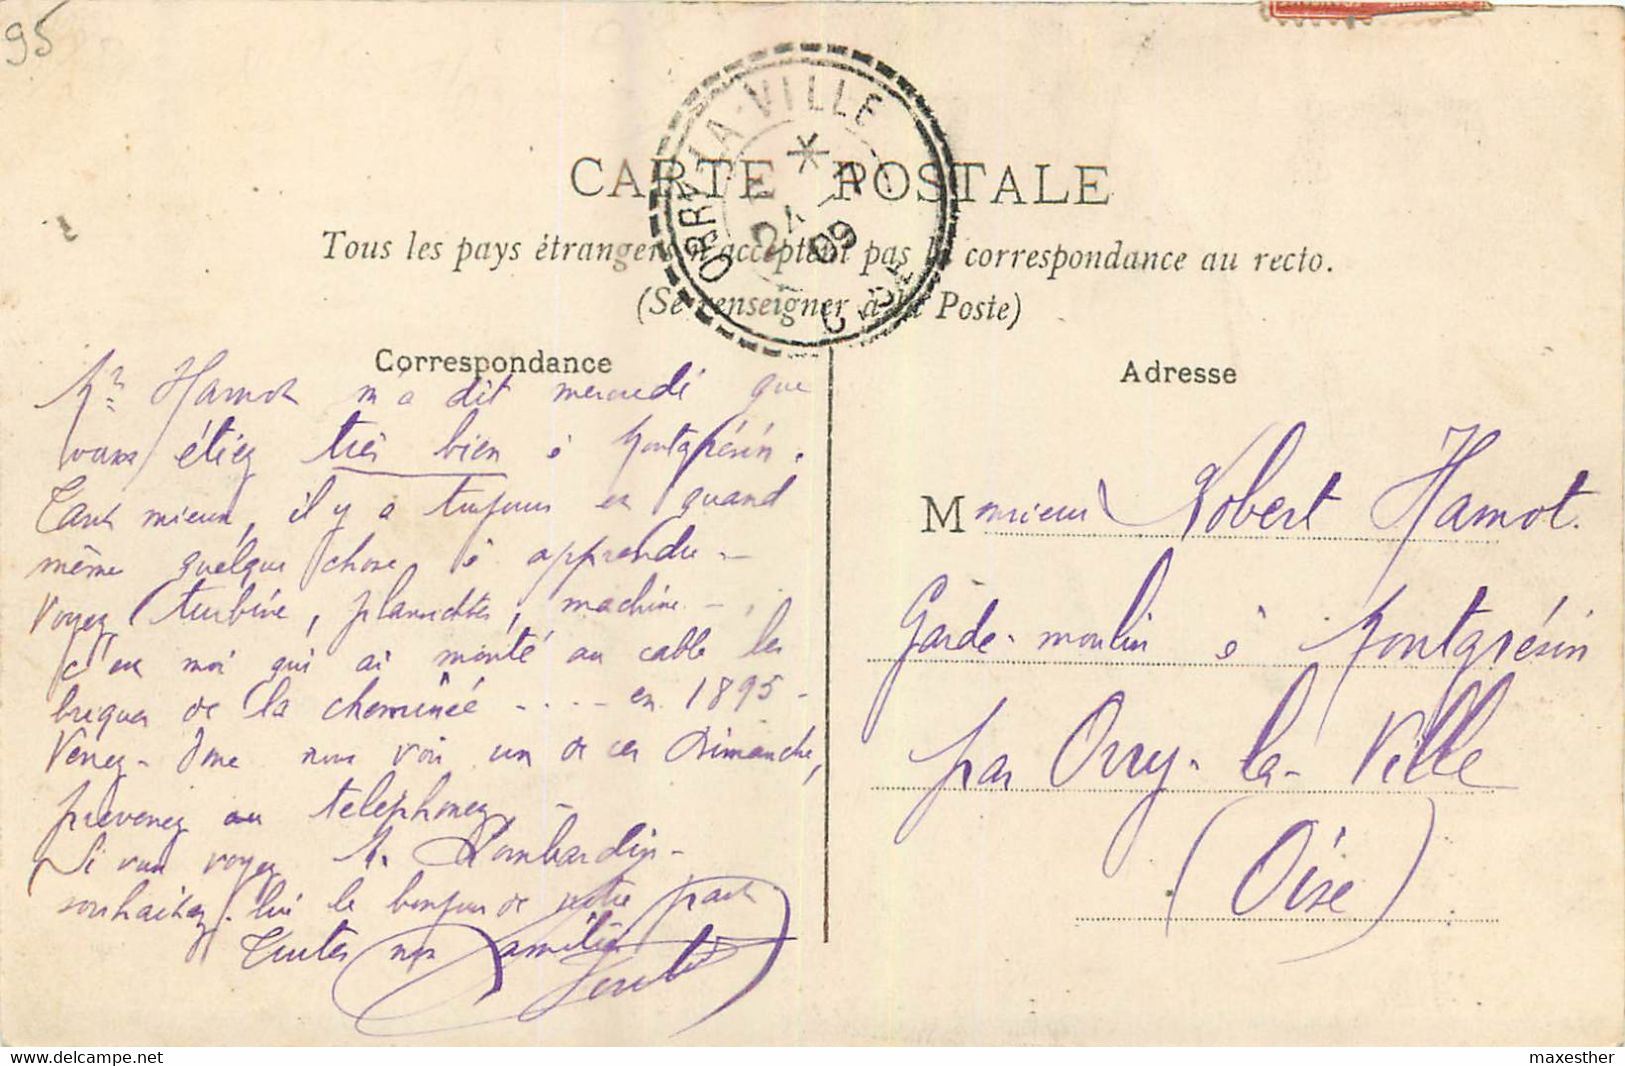 95
ORRY-LA-VILLE
OISE
09
CARTE POSTALE
Tous les pays étrangers n'acceptent pas la correspondance au recto.
(Se renseigner à la Poste)
Correspondance
Mr Hamot m'a dit mercredi que
vous étiez très bien à Montgrésin.
Tant mieux, il y a toujours eu quand
même quelque chose à apprendre –
Voyez turbine, planchettes, machine –,
c'est moi qui ai monté au cable les
briques de la cheminée .... en 1895 –
Venez-donc nous voir un de ces Dimanche,
prévenez ou téléphonez –
Si vous voyez M. Lombardin –
souhaitez-lui le bonjour de notre part
Toutes nos amitiés
Adresse
Monsieur Robert Hamot.
Garde-moulin à Montgrésin
par Orry-la-Ville
(Oise)
delcampe.net
maxesther